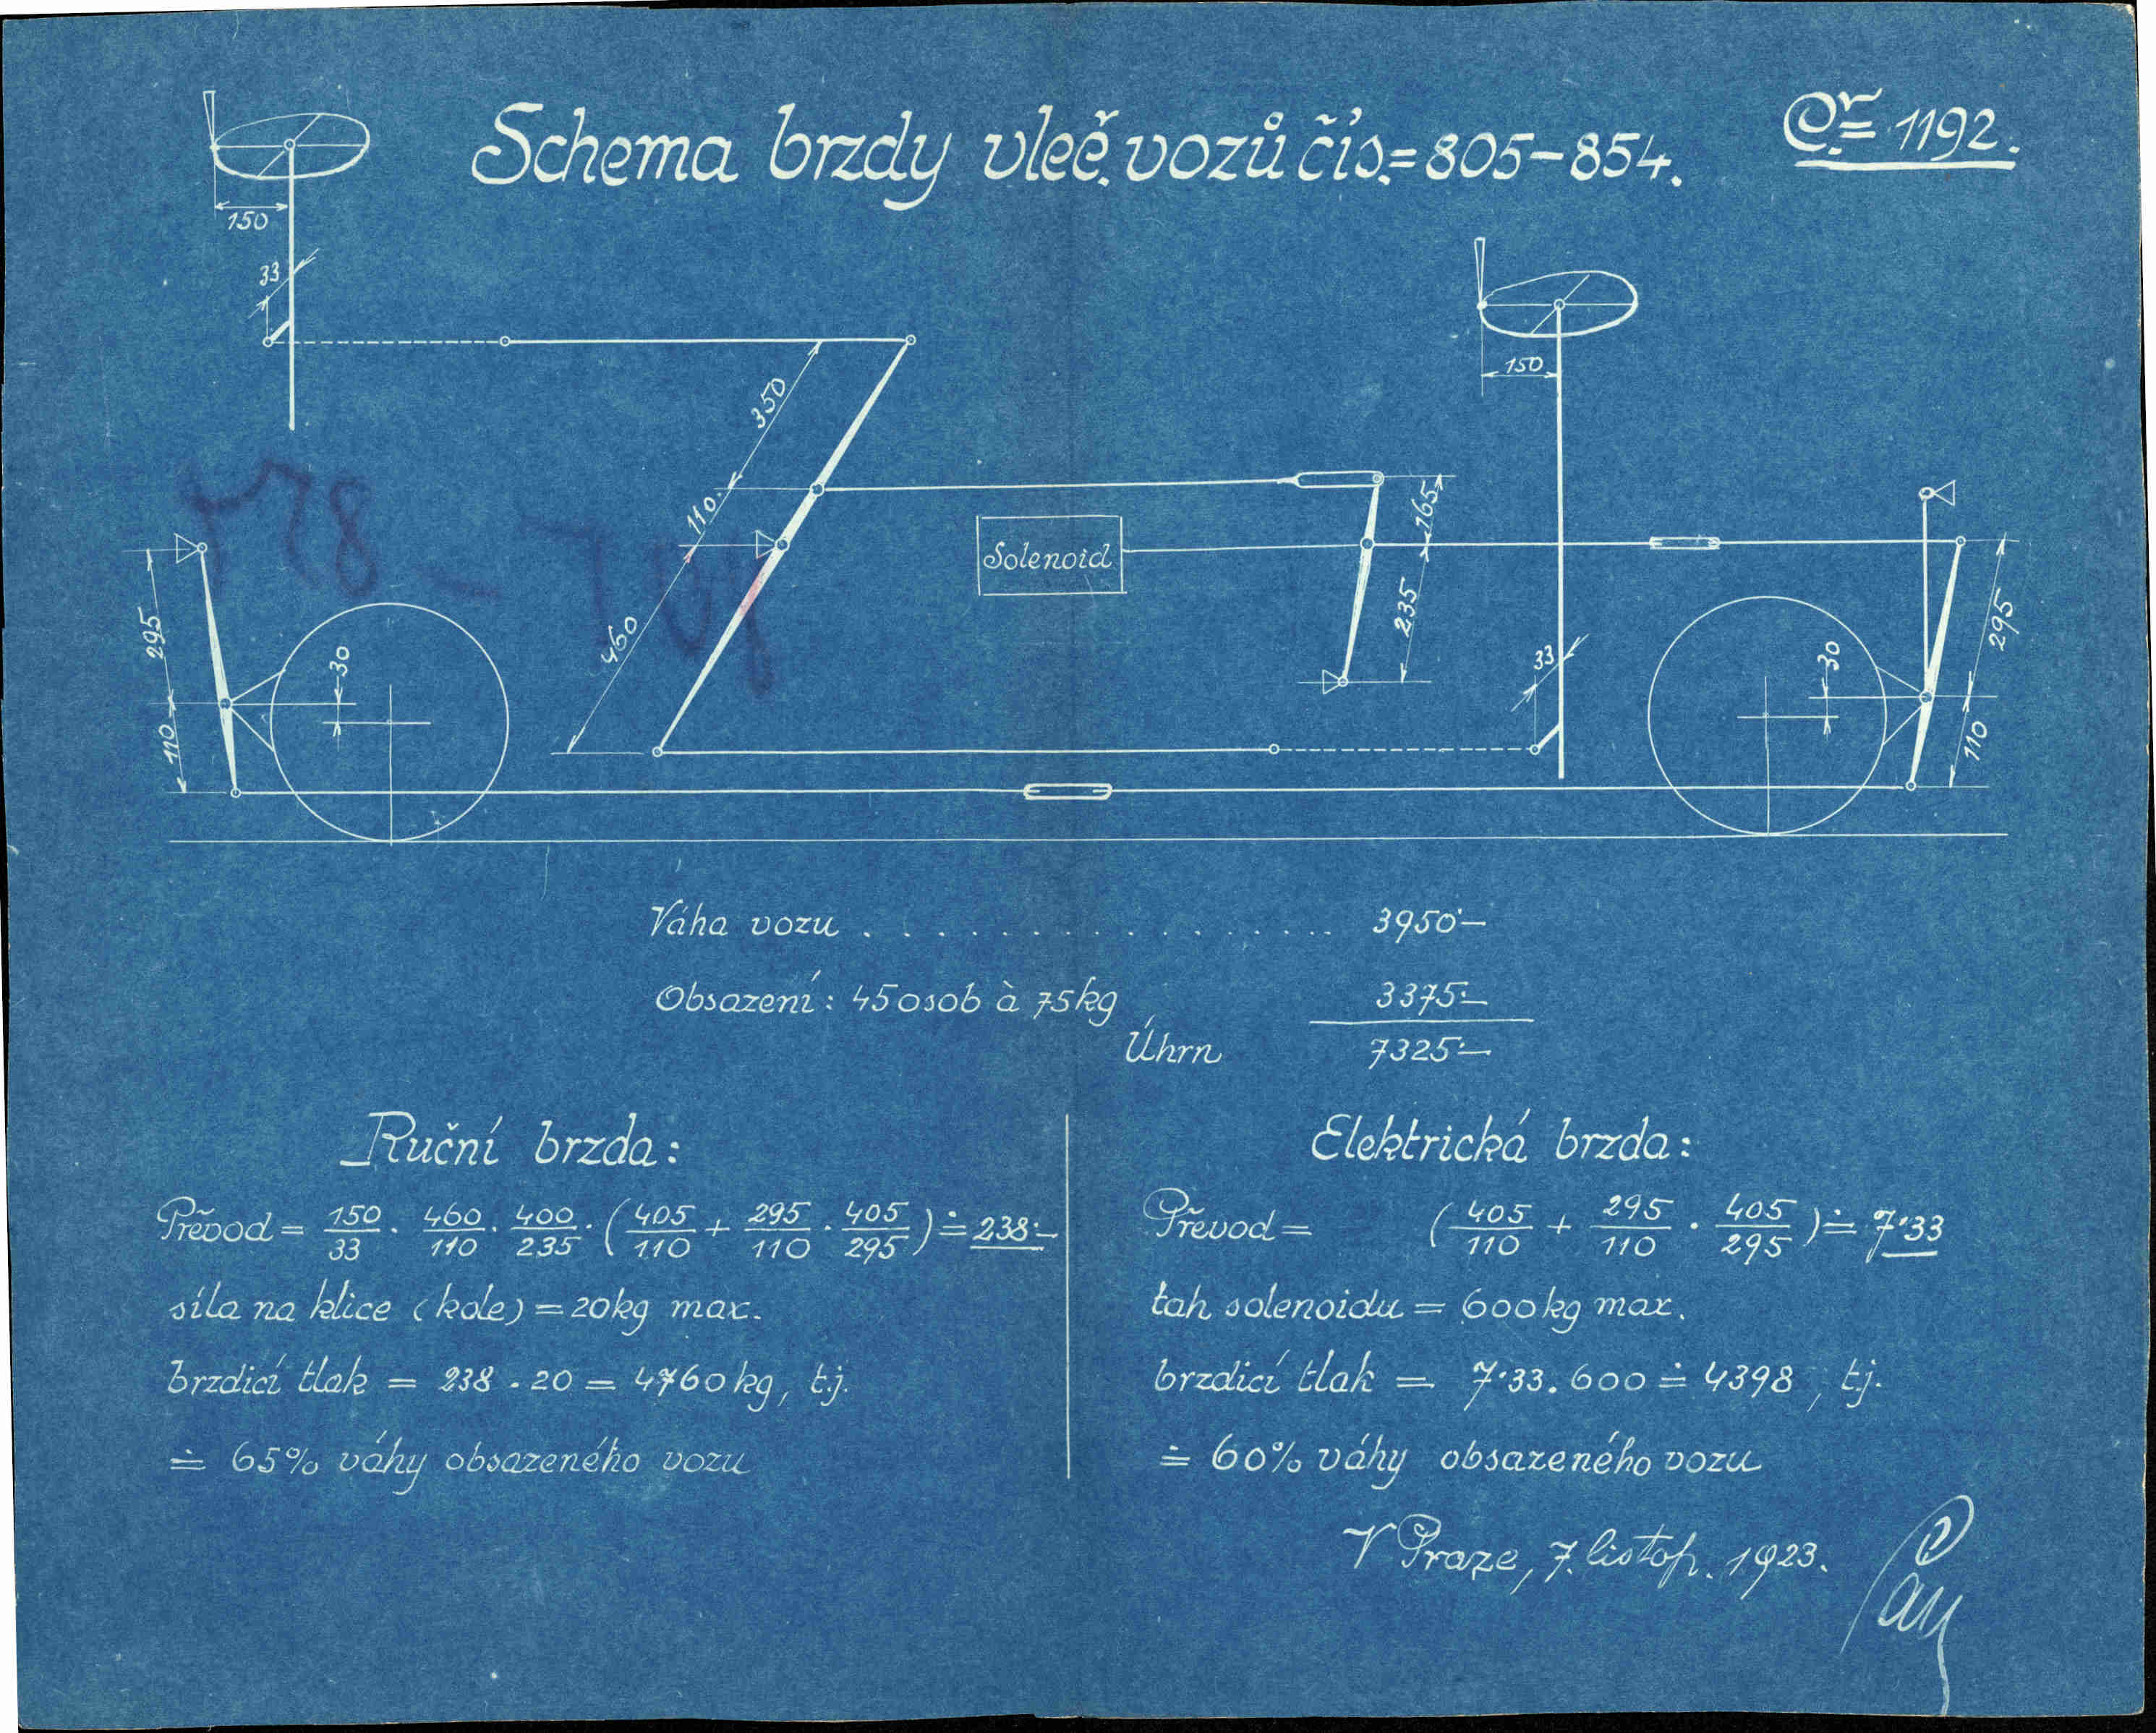 Schema brzdy vleč. vozů čís. = 805–854.
Čř = 1192.
150
33
350
110.
460
Solenoid
165
235
150
33
295
110
30
30
295
110
Váha vozu . . . . . . . . . . . . . . . . . 3950·–
Obsazení: 45 osob à 75kg 3375·–
Úhrn 7325·–
Ruční brzda:
Převod = 150/33 · 460/110 · 400/235 · (405/110 + 295/110 · 405/295) ≐ 238·–
síla na klice (kole) = 20kg max.
brzdicí tlak = 238 . 20 = 4760 kg, t.j.
≐ 65% váhy obsazeného vozu
Elektrická brzda:
Převod = (405/110 + 295/110 · 405/295) ≐ 7·33
tah solenoidu = 600kg max.
brzdicí tlak = 7·33 . 600 ≐ 4398, t.j.
≐ 60% váhy obsazeného vozu
V Praze, 7. listop. 1923.